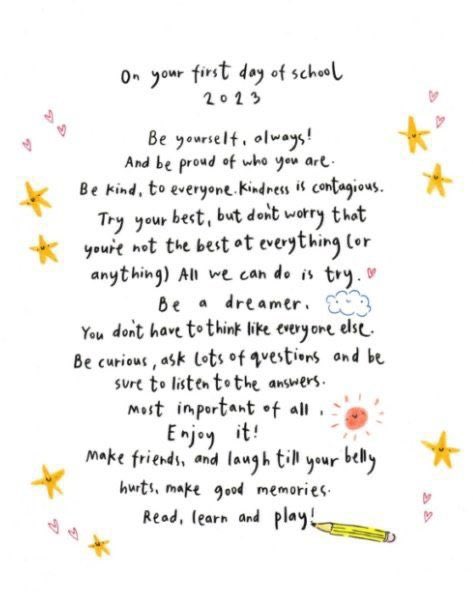 On your first day of school
2023
Be yourself, always!
And be proud of who you are.
Be kind, to everyone. Kindness is contagious.
Try your best, but don't worry that
you're not the best at everything (or
anything) All we can do is try.
Be a dreamer.
You don't have to think like everyone else.
Be curious, ask lots of questions and be
sure to listen to the answers.
Most important of all,
Enjoy it!
Make friends, and laugh till your belly
hurts, make good memories.
Read, learn and play!